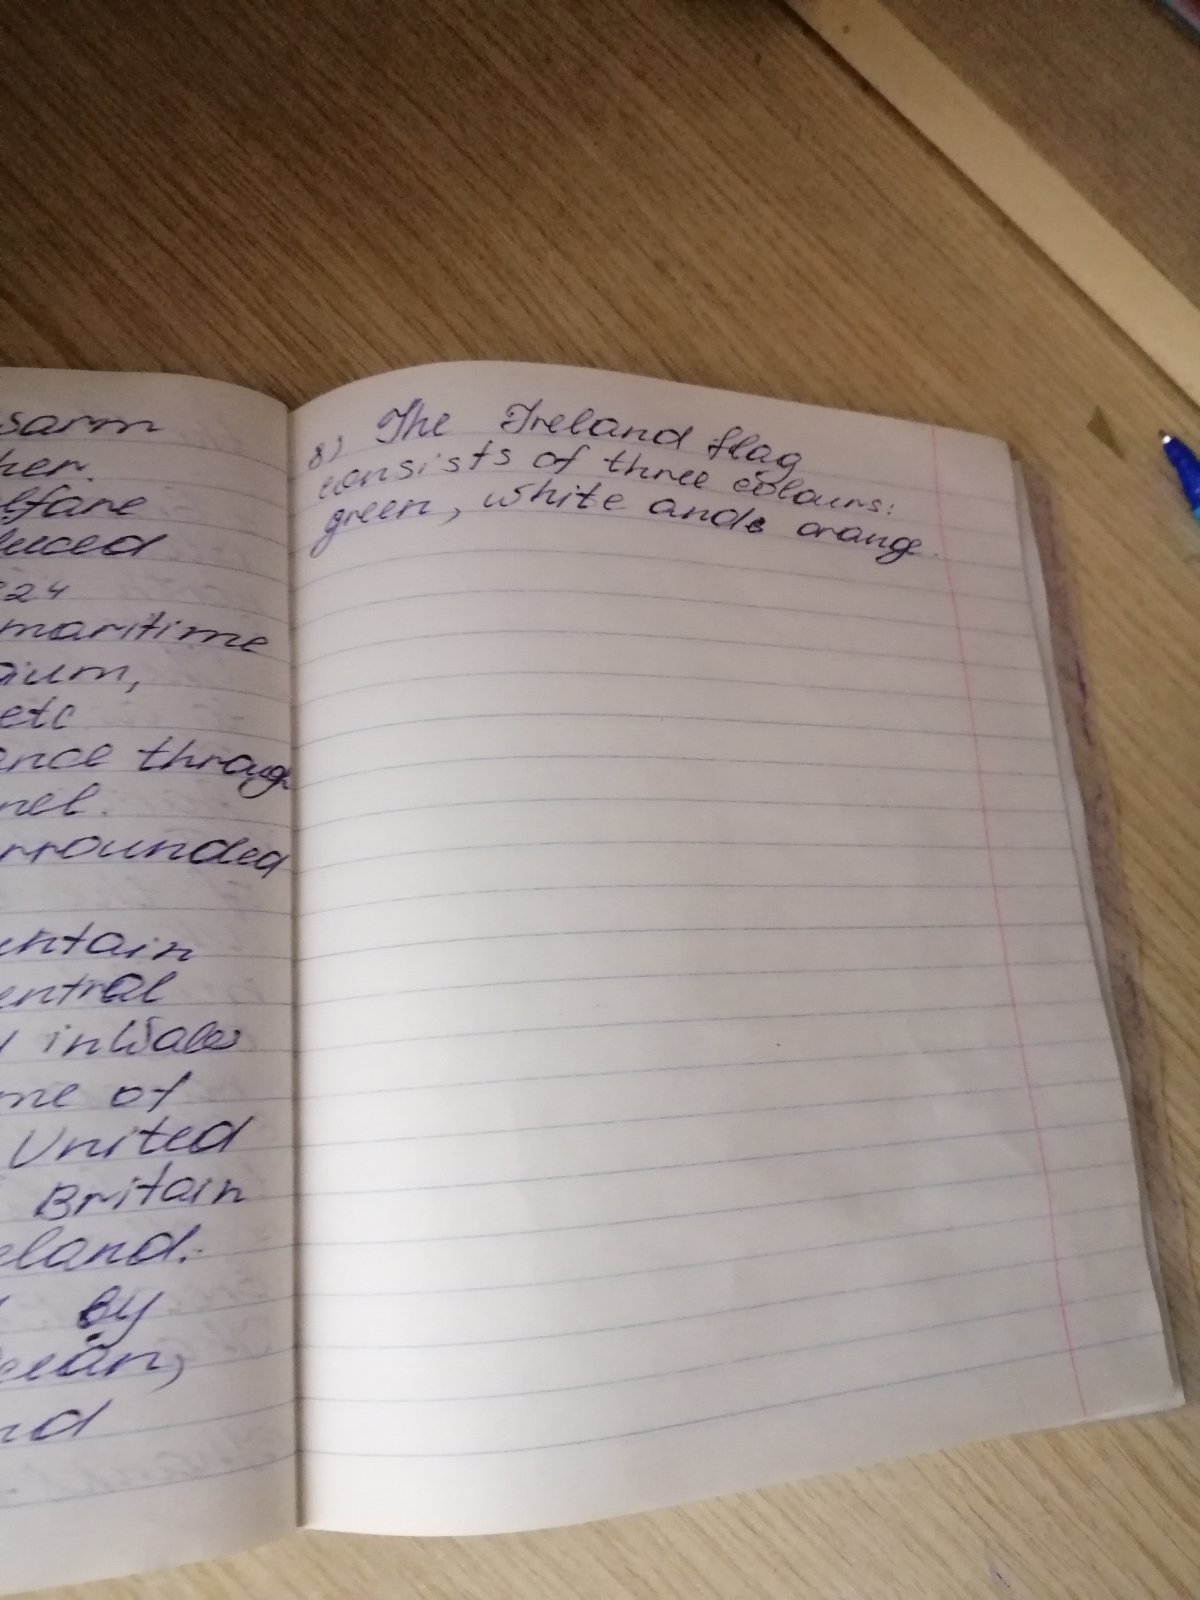 sarm
her.
lfare
duced
24
maritime
ium,
etc
ance through
nel.
rrounded
untain
entral
in Wales
me of
United
Britain
eland.
by
cean,
nd
8) The Ireland flag
consists of three colours:
green, white and orange.